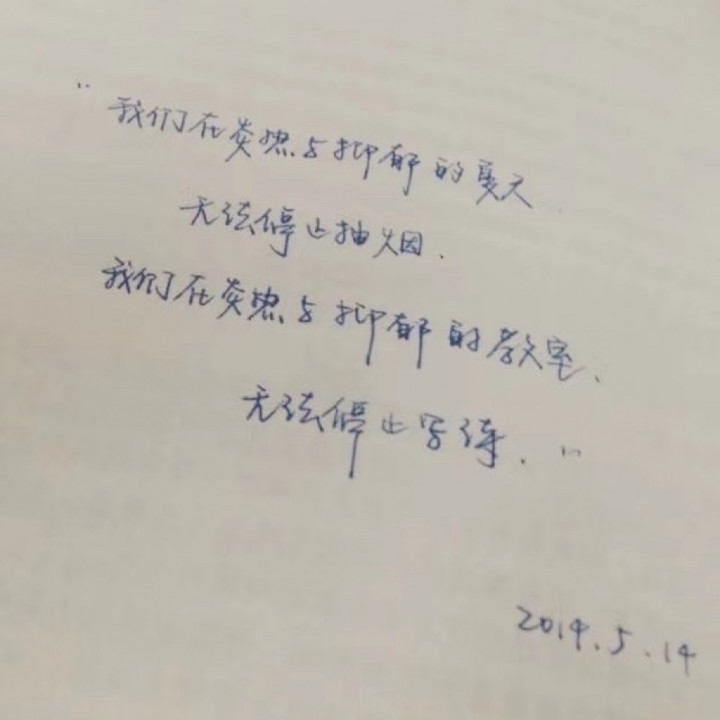 "我们在炎热与抑郁的夏天
无法停止抽烟.
我们在炎热与抑郁的教室、
无法停止写诗."
2019.5.14